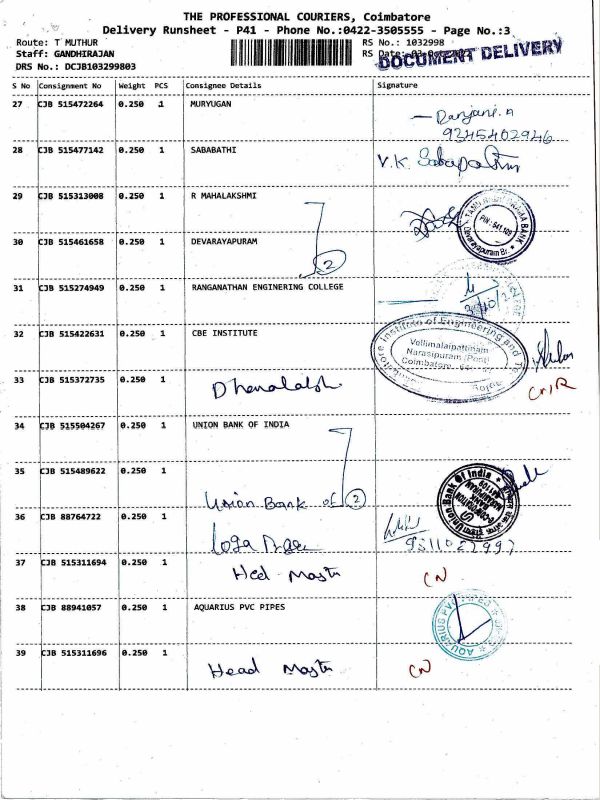 THE PROFESSIONAL COURIERS, Coimbatore
Delivery Runsheet - P41 - Phone No.:0422-3505555 - Page No.:3
Route: T MUTHUR RS No.: 1032998
Staff: GANDHIRAJAN RS Date:
DOCUMENT DELIVERY
DRS No.: DCJB103299803
S No Consignment No Weight PCS Consignee Details Signature
27 CJB 515472264 0.250 1 MURYUGAN
28 CJB 515477142 0.250 1 SABABATHI V.K. Sabapathy
29 CJB 515313008 0.250 1 R MAHALAKSHMI
30 CJB 515461658 0.250 1 DEVARAYAPURAM
2
31 CJB 515274949 0.250 1 RANGANATHAN ENGINERING COLLEGE
32 CJB 515422631 0.250 1 CBE INSTITUTE
Institute of Engineering and
Vellimalaipattinam
Narasipuram (Post)
Coimbatore
33 CJB 515372735 0.250 1
34 CJB 515504267 0.250 1 UNION BANK OF INDIA
35 CJB 515489622 0.250 1
Union Bank of 2
Union Bank of India
36 CJB 88764722 0.250 1
37 CJB 515311694 0.250 1 CN
38 CJB 88941057 0.250 1 AQUARIUS PVC PIPES
AQUARIUS PVC
39 CJB 515311696 0.250 1 Head CN